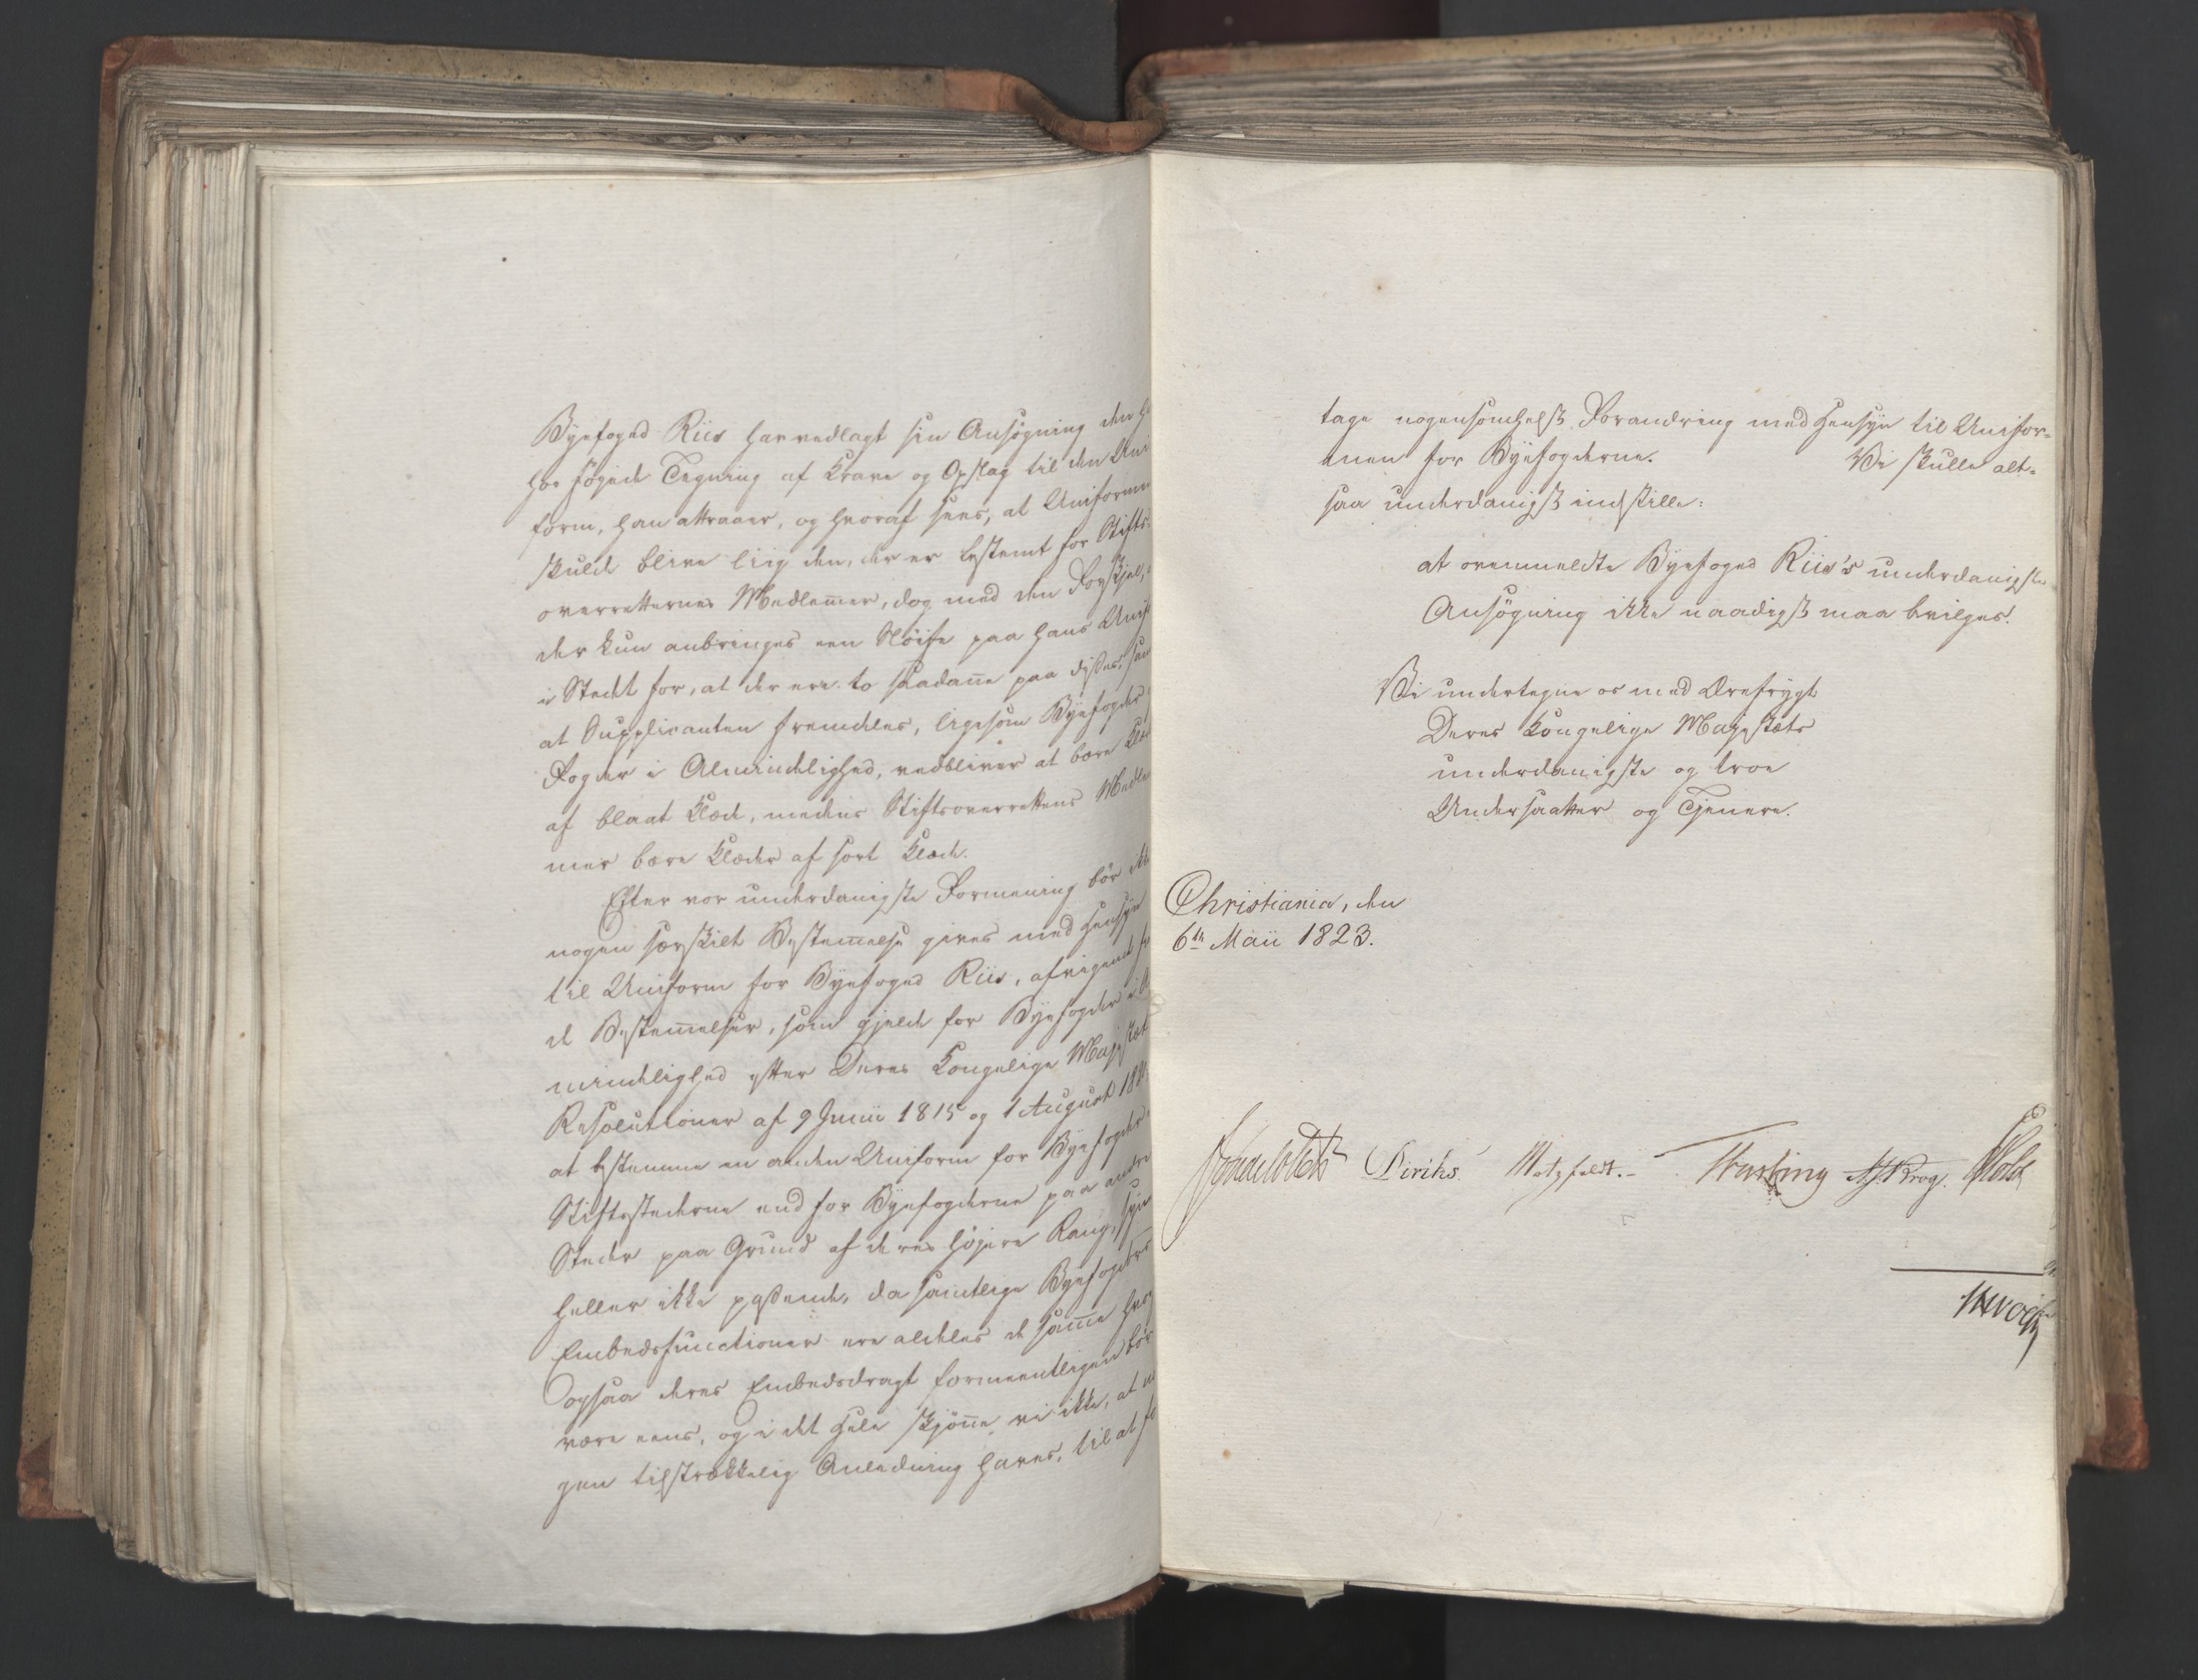 Byefoged Riis har vedlagt sin Ansøgning den
hosføiede Tegning af Krave og Opslag til den Uni
form, han attraaer, og hvoraf sees, at Uniformen
skulde blive liig den, der er bestemt for Stifts-
overretternes Medlemmer, dog med den Forskjel,
der kun anbringes een Sløife paa hans
i Stedet for, at der ere to saadanne paa disses,
at Supplicanten fremdeles, ligesom Byefogder
Fogder i Almindelighed, vedbliver at bære
af blaat Klæde, medens Stiftsoverrettens Medlem
mer bære Klæder af sort Klæde.
Efter vor underdanigste Formening bør ikke
nogen særskilt Bestemmelse gives med Hensyn
til Uniform for Byefoged Riis, afvigende fra
de Bestemmelser, som gjelde for Byefogder i Al
mindelighed efter Deres Kongelige Majestæts
Resolutioner af 9 Junii 1815 og 1 August
at bestemme en anden Uniform for Byefogder
Stiftsstederne end for Byefogderne paa andre
Steder paa Grund af deres høiere Rang, synes
heller ikke passende, da samtlige Byefogders
Embedsfunctioner ere aldeles de samme hvor
ogsaa deres Embedsdragt formeentligen bør
være eens, og i det Hele skjønne vi ikke, at no
gen tilstrækkelig Anledning haves, til at fore
tage nogensomhelst Forandring med Hensyn til Unifor-
men for Byefogderne. Vi skulle alt-
saa underdanigst indstille:
at ovenmeldte Byefoged Riis's underdanigste
Ansøgning ikke naadigst maa bevilges.
Vi undertegne os med Ærefrygt
Deres Kongelige Majestæts
underdanigste og troe
Undersaatter og Tjenere.
Christiania, den
6te Maii 1823.
Diriks. Motzfeldt. Fasting Krog. Holst